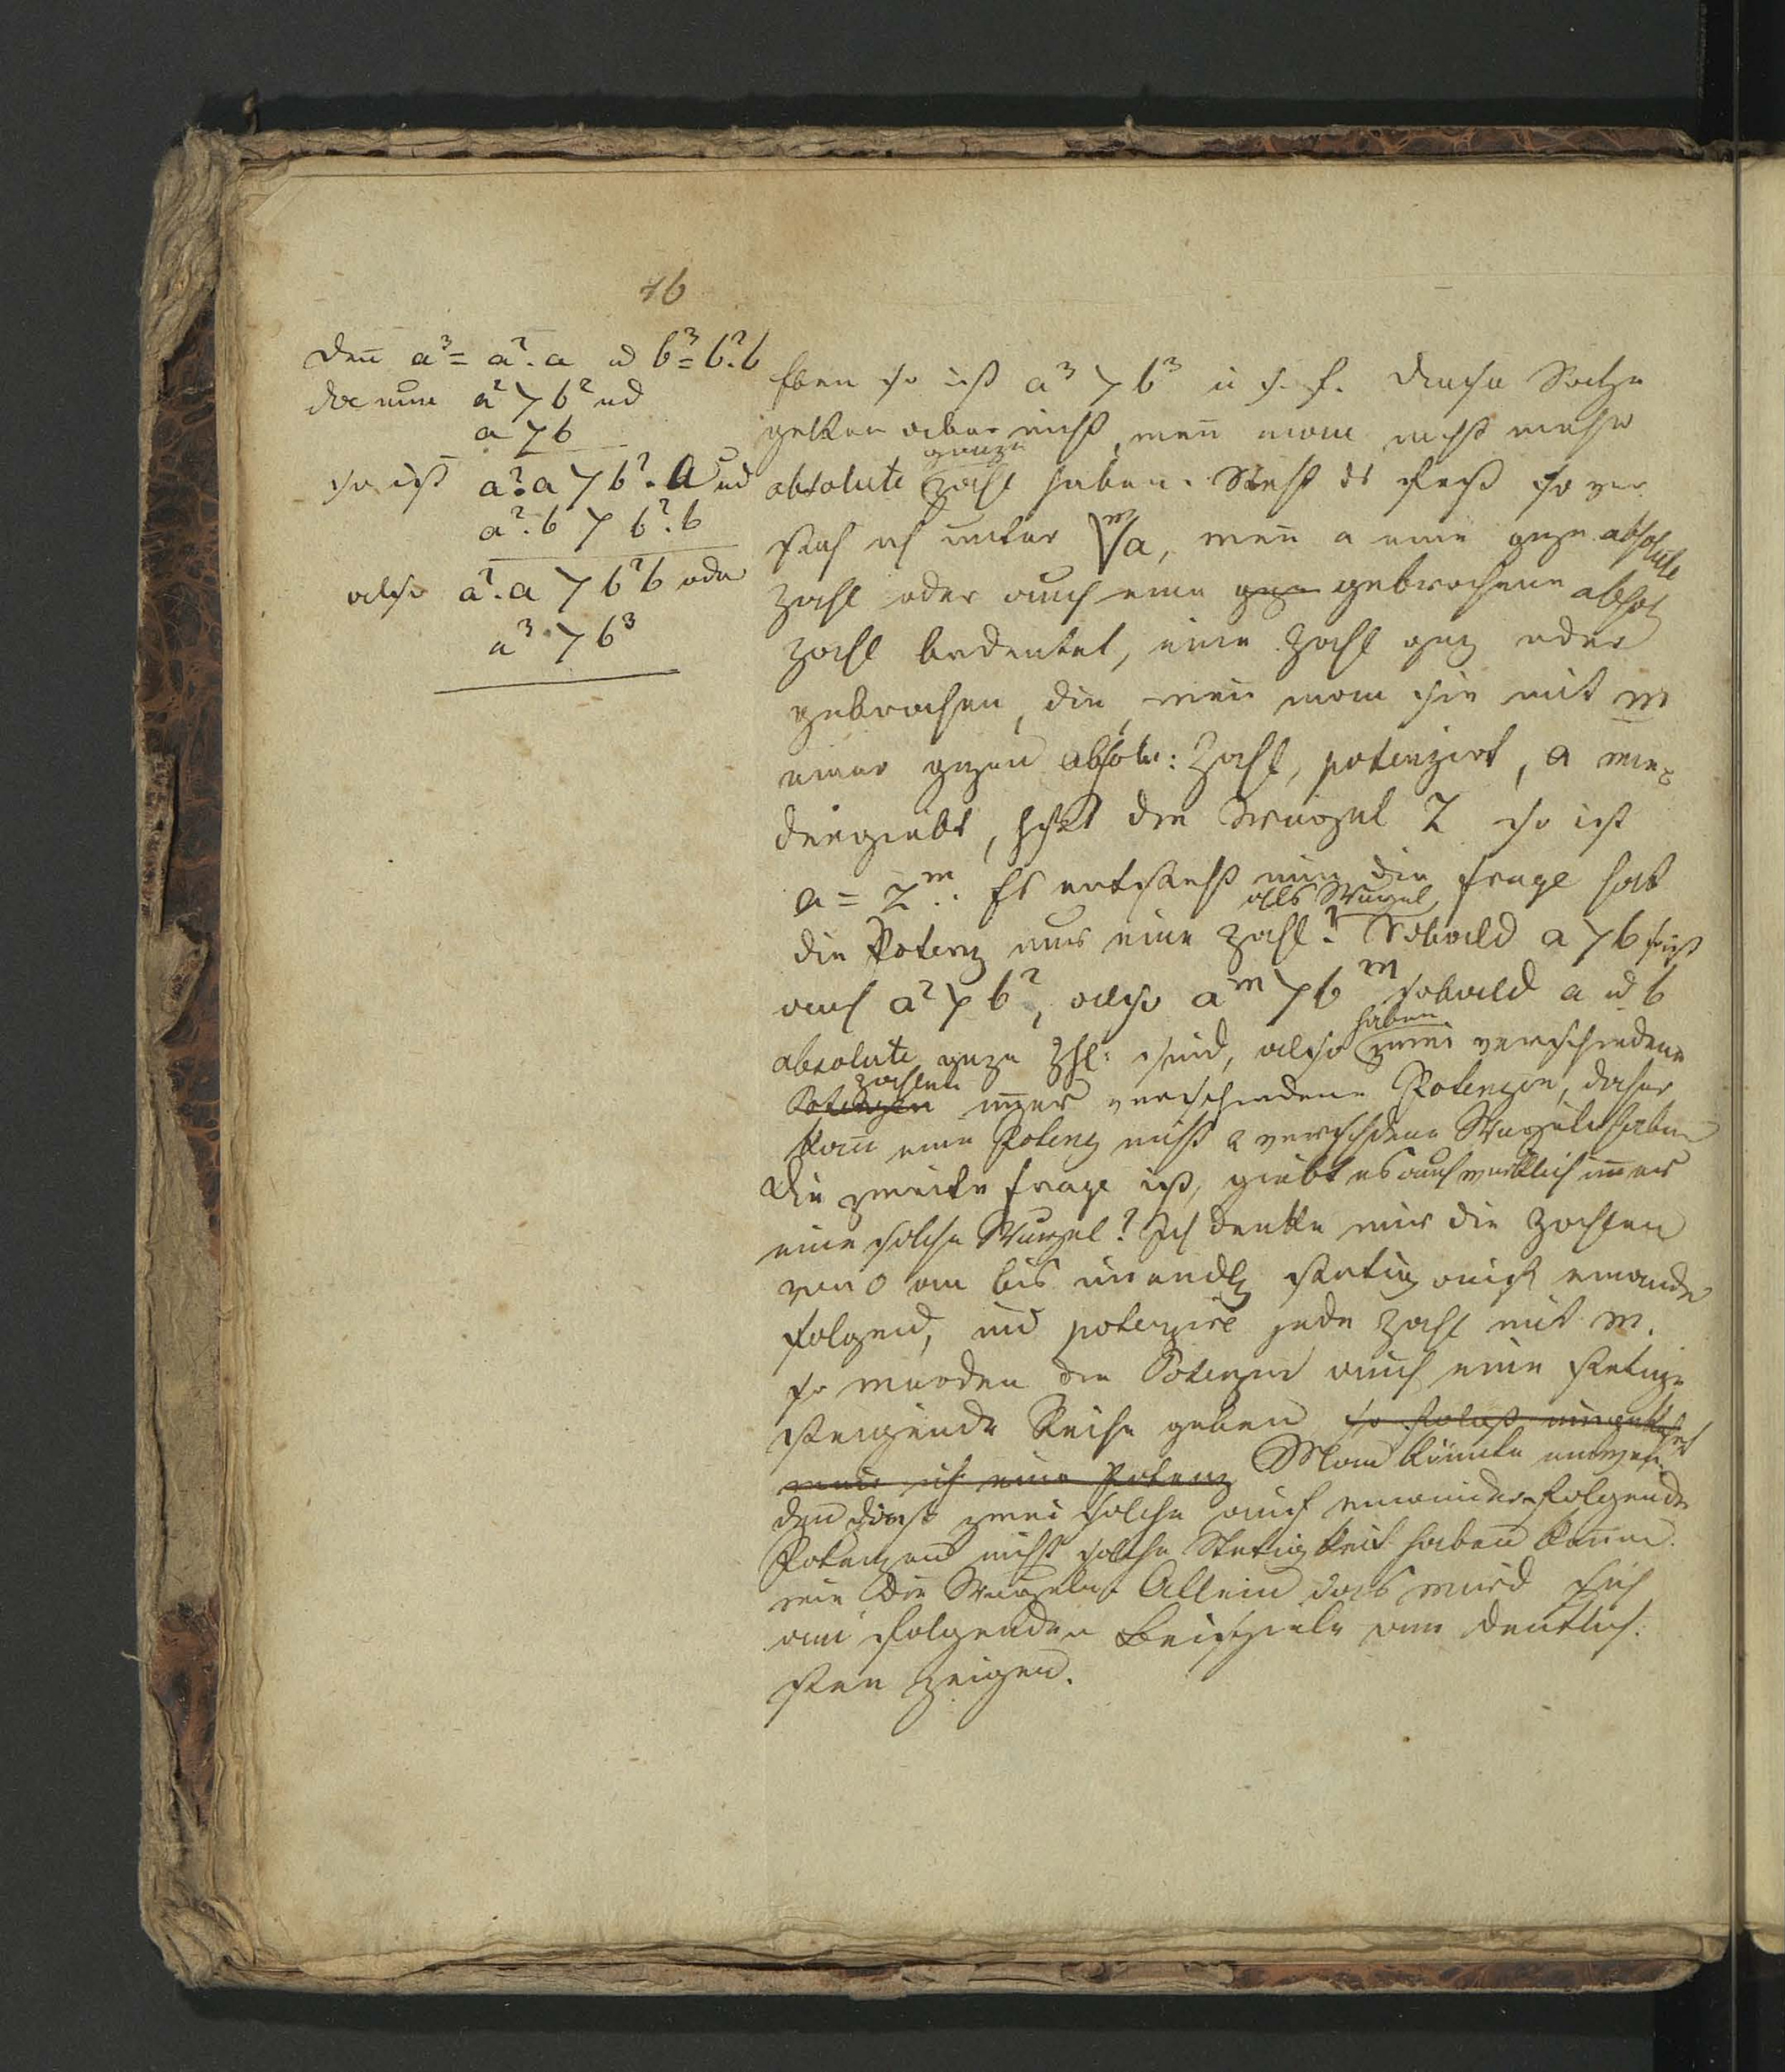 76
deñ a³ = a². a u b³ = b². b
da nun a² > b² ud
a > b
so ist a². a > b². a ud
a². b > b². b
also a². a > b² b oder
a³ > b³
Eben so ist a³ > b³ u s. f. Diese Sätze
gelten aber nicht, weñ man nicht mehr
ganze
absolute Zahl haben. Steht es fest so ver
steh ich unter ᵐ√a, weñ a eine gaze absolute
Zahl oder auch eine gaze gebrochene absol
Zahl bedeutet, eine Zahl gaz oder
gebrochen, die, weñ man sie mit m
einer gazen absolu: Zahl, potenzirt, a wie=
dergiebt, hßt die Wurzel Z so ist
a = Zᵐ. Es entsteht nun die Frage hat
als Wurzel
die Potenz nur eine Zahl? Sobald a > b so ist
auch a² > b², also aᵐ > bᵐ sobald a u b
haben
absolute gaze Zhl: sind, also zwei verschiedene
Zahlen
Potenzen im̃er verschiedene Potenzen, daher
kañ eine Potenz nicht 2 verschiedene Wurzeln haben
Die zweite Frage ist, giebt es auch wirklich im̃er
eine solche Wurzel? Ich denke mir die Zahlen
von 0 an bis unendl stetig auf einander
folgend, und potenzire jede Zahl mit m.
so werden die Potenzen auch eine stetige
steigende Reihe geben so folgt umgekehrt
weñ ich eine Potenz Man könnte einwen
den daß zwei solche auf einander folgende
Potenzen nicht solche Stetigkeit haben könen
wie die Wurzeln. Allein das wird sich
am folgenden Beispiele am deutlich
sten zeigen.